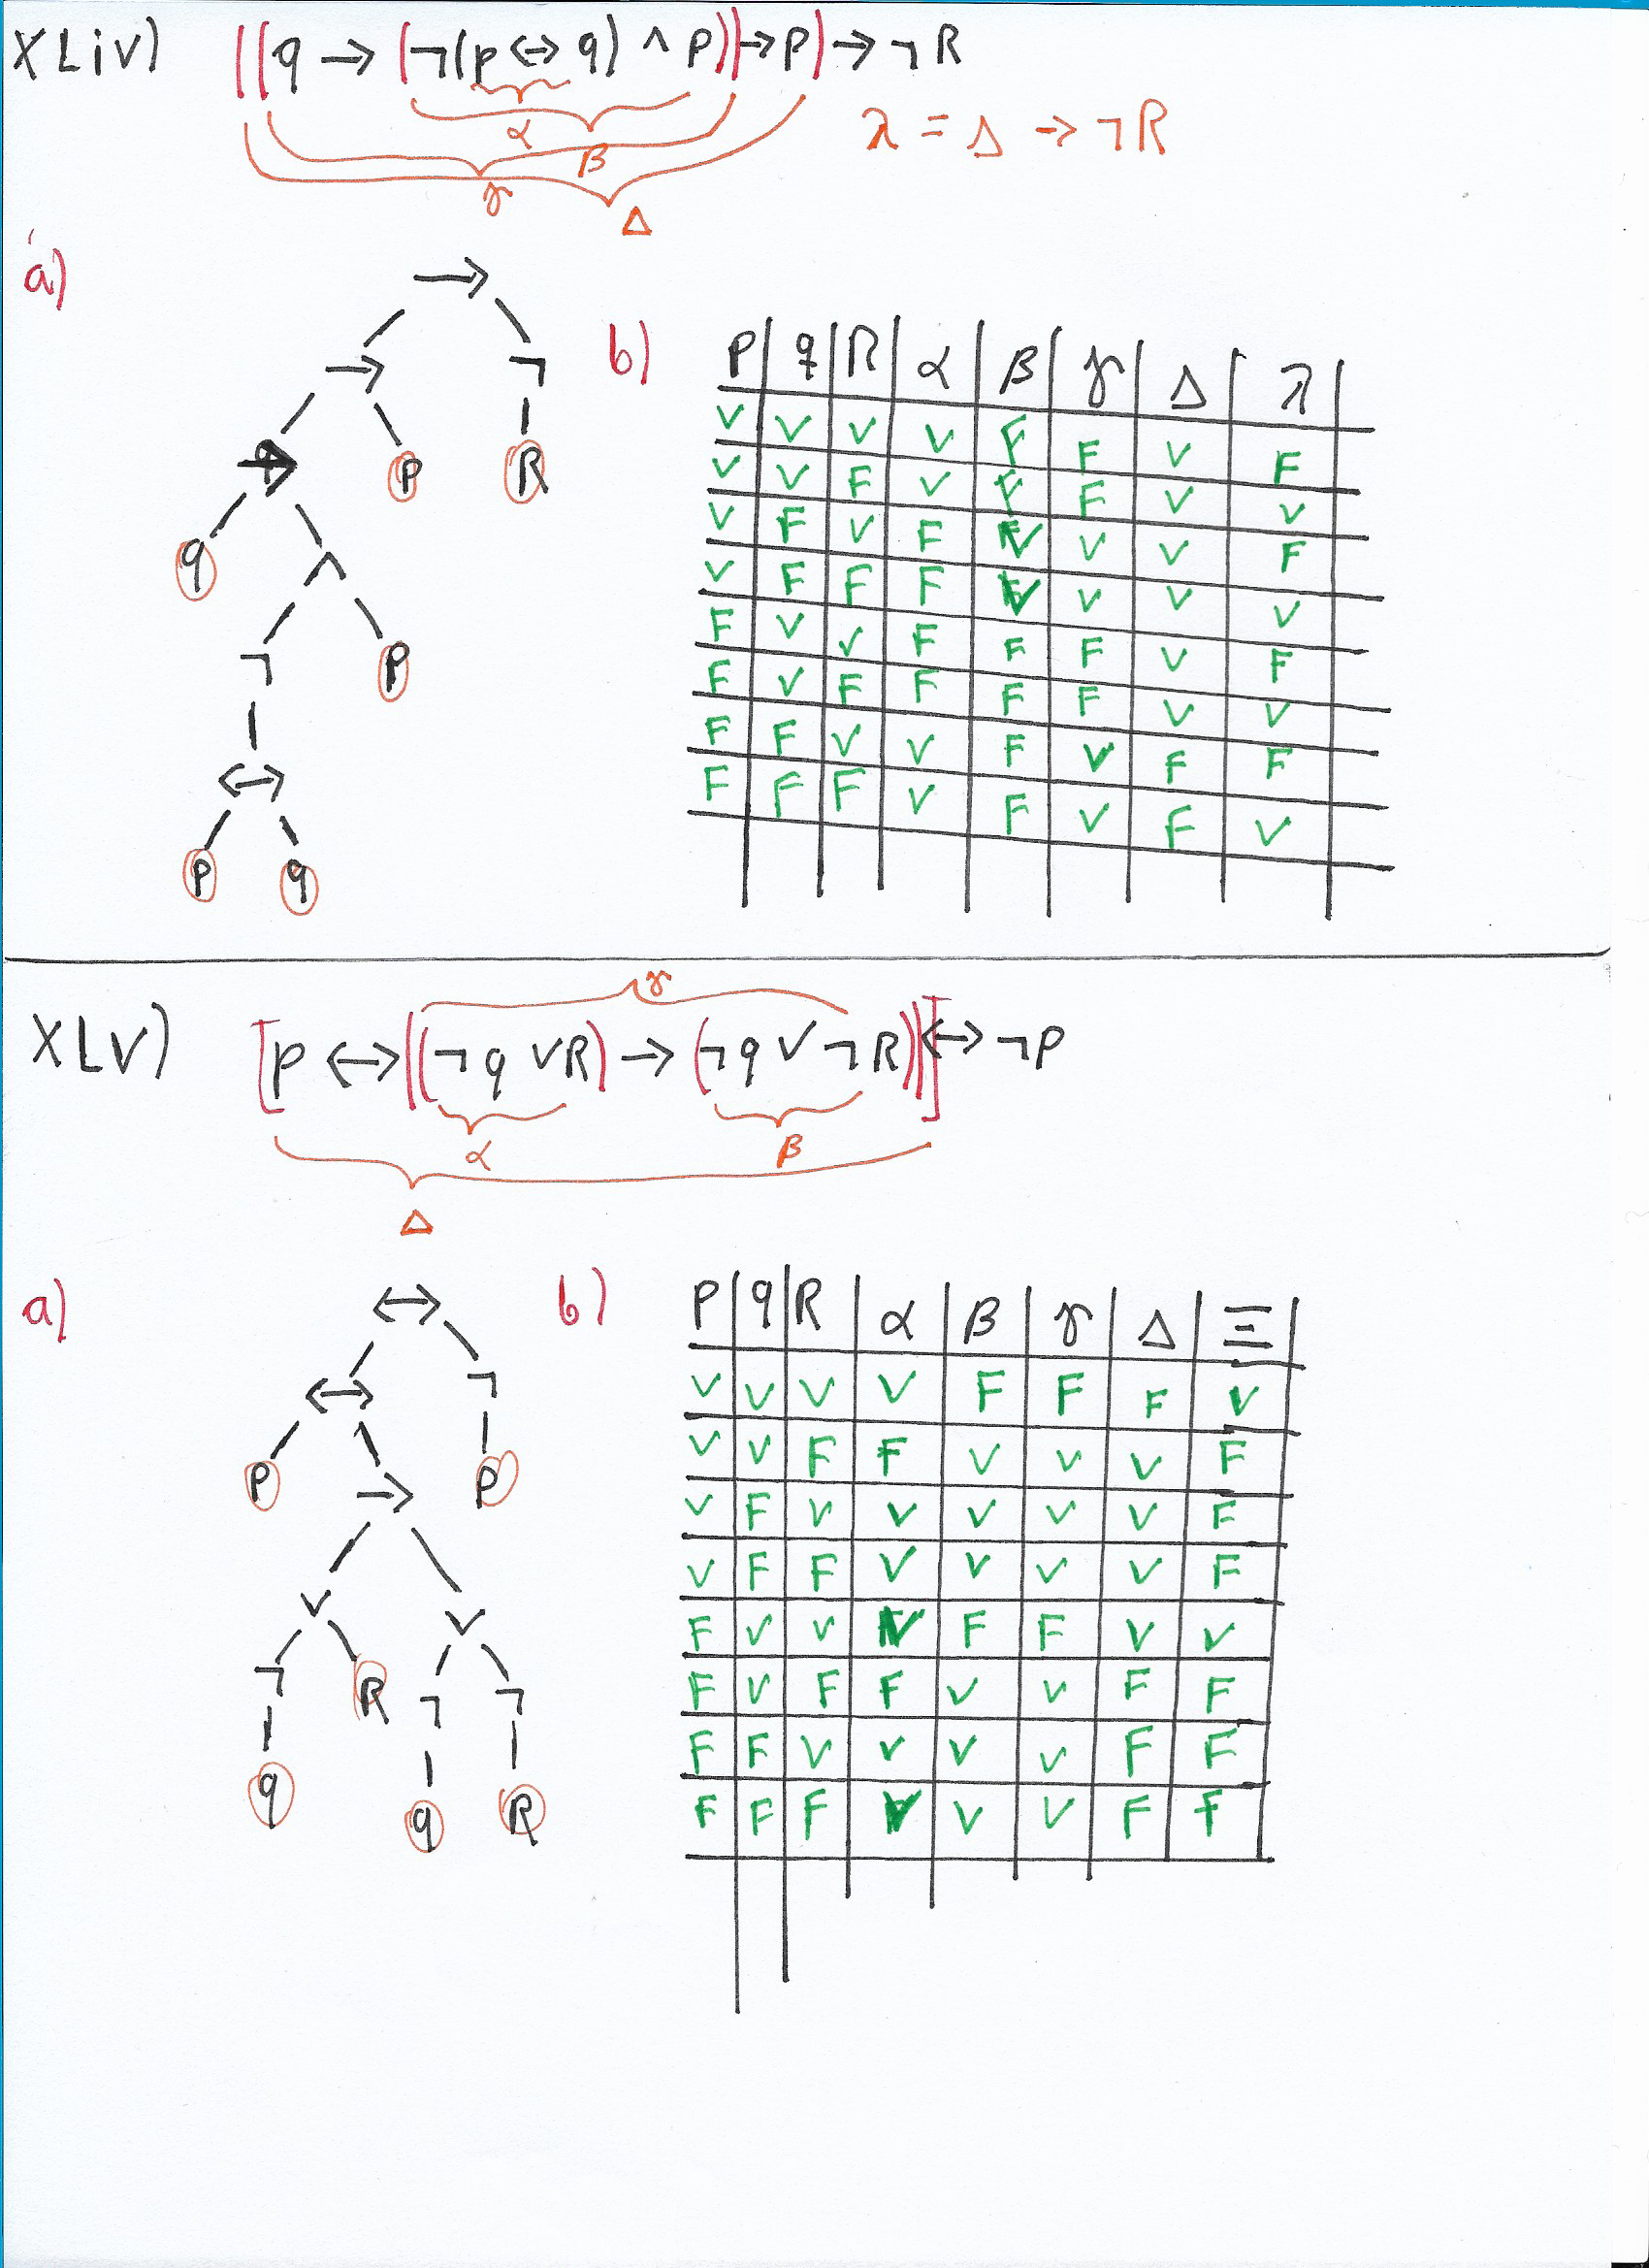 XLiv) ((q → (¬(p ↔ q) ∧ p)) → p) → ¬R
α
β
γ
Δ
λ = Δ → ¬R
a)
→
→ ¬
→ P R
q ∧
¬ P
↔
P q
b)
P q R α β γ Δ λ
V V V V F F V F
V V F V F F V V
V F V F V V V F
V F F F V V V V
F V V F F F V F
F V F F F F V V
F F V V F V F F
F F F V F V F V
γ
XLV) [p ↔ ((¬q ∨ R) → (¬q ∨ ¬R))] ↔ ¬P
α β
Δ
a)
↔
↔ ¬
P → P
∨ ∨
¬ R ¬ ¬
q q R
b)
P q R α β γ Δ Ξ
V V V V F F F V
V V F F V V V F
V F V V V V V F
V F F V V V V F
F V V V F F V V
F V F F V V F F
F F V V V V F F
F F F V V V F F